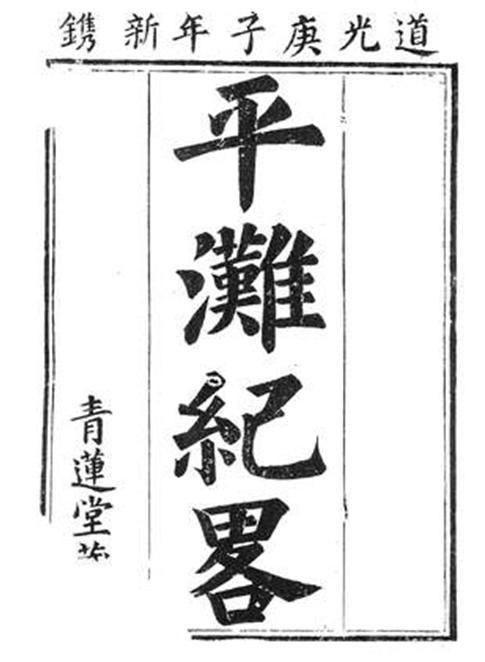 道光庚子年新鐫
平灘紀畧
青蓮堂